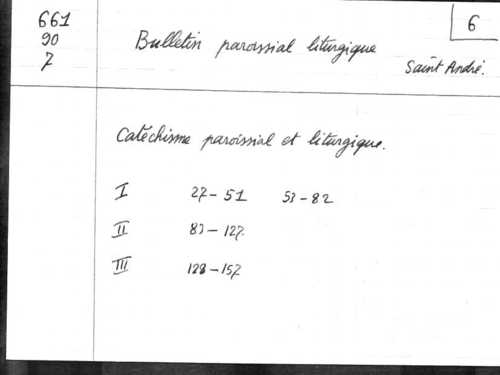 661
90
7
Bulletin paroissial liturgique
6
Saint André.
Catéchisme paroissial et liturgique.
I 27-51 53-82
II 83-127
III 128-157